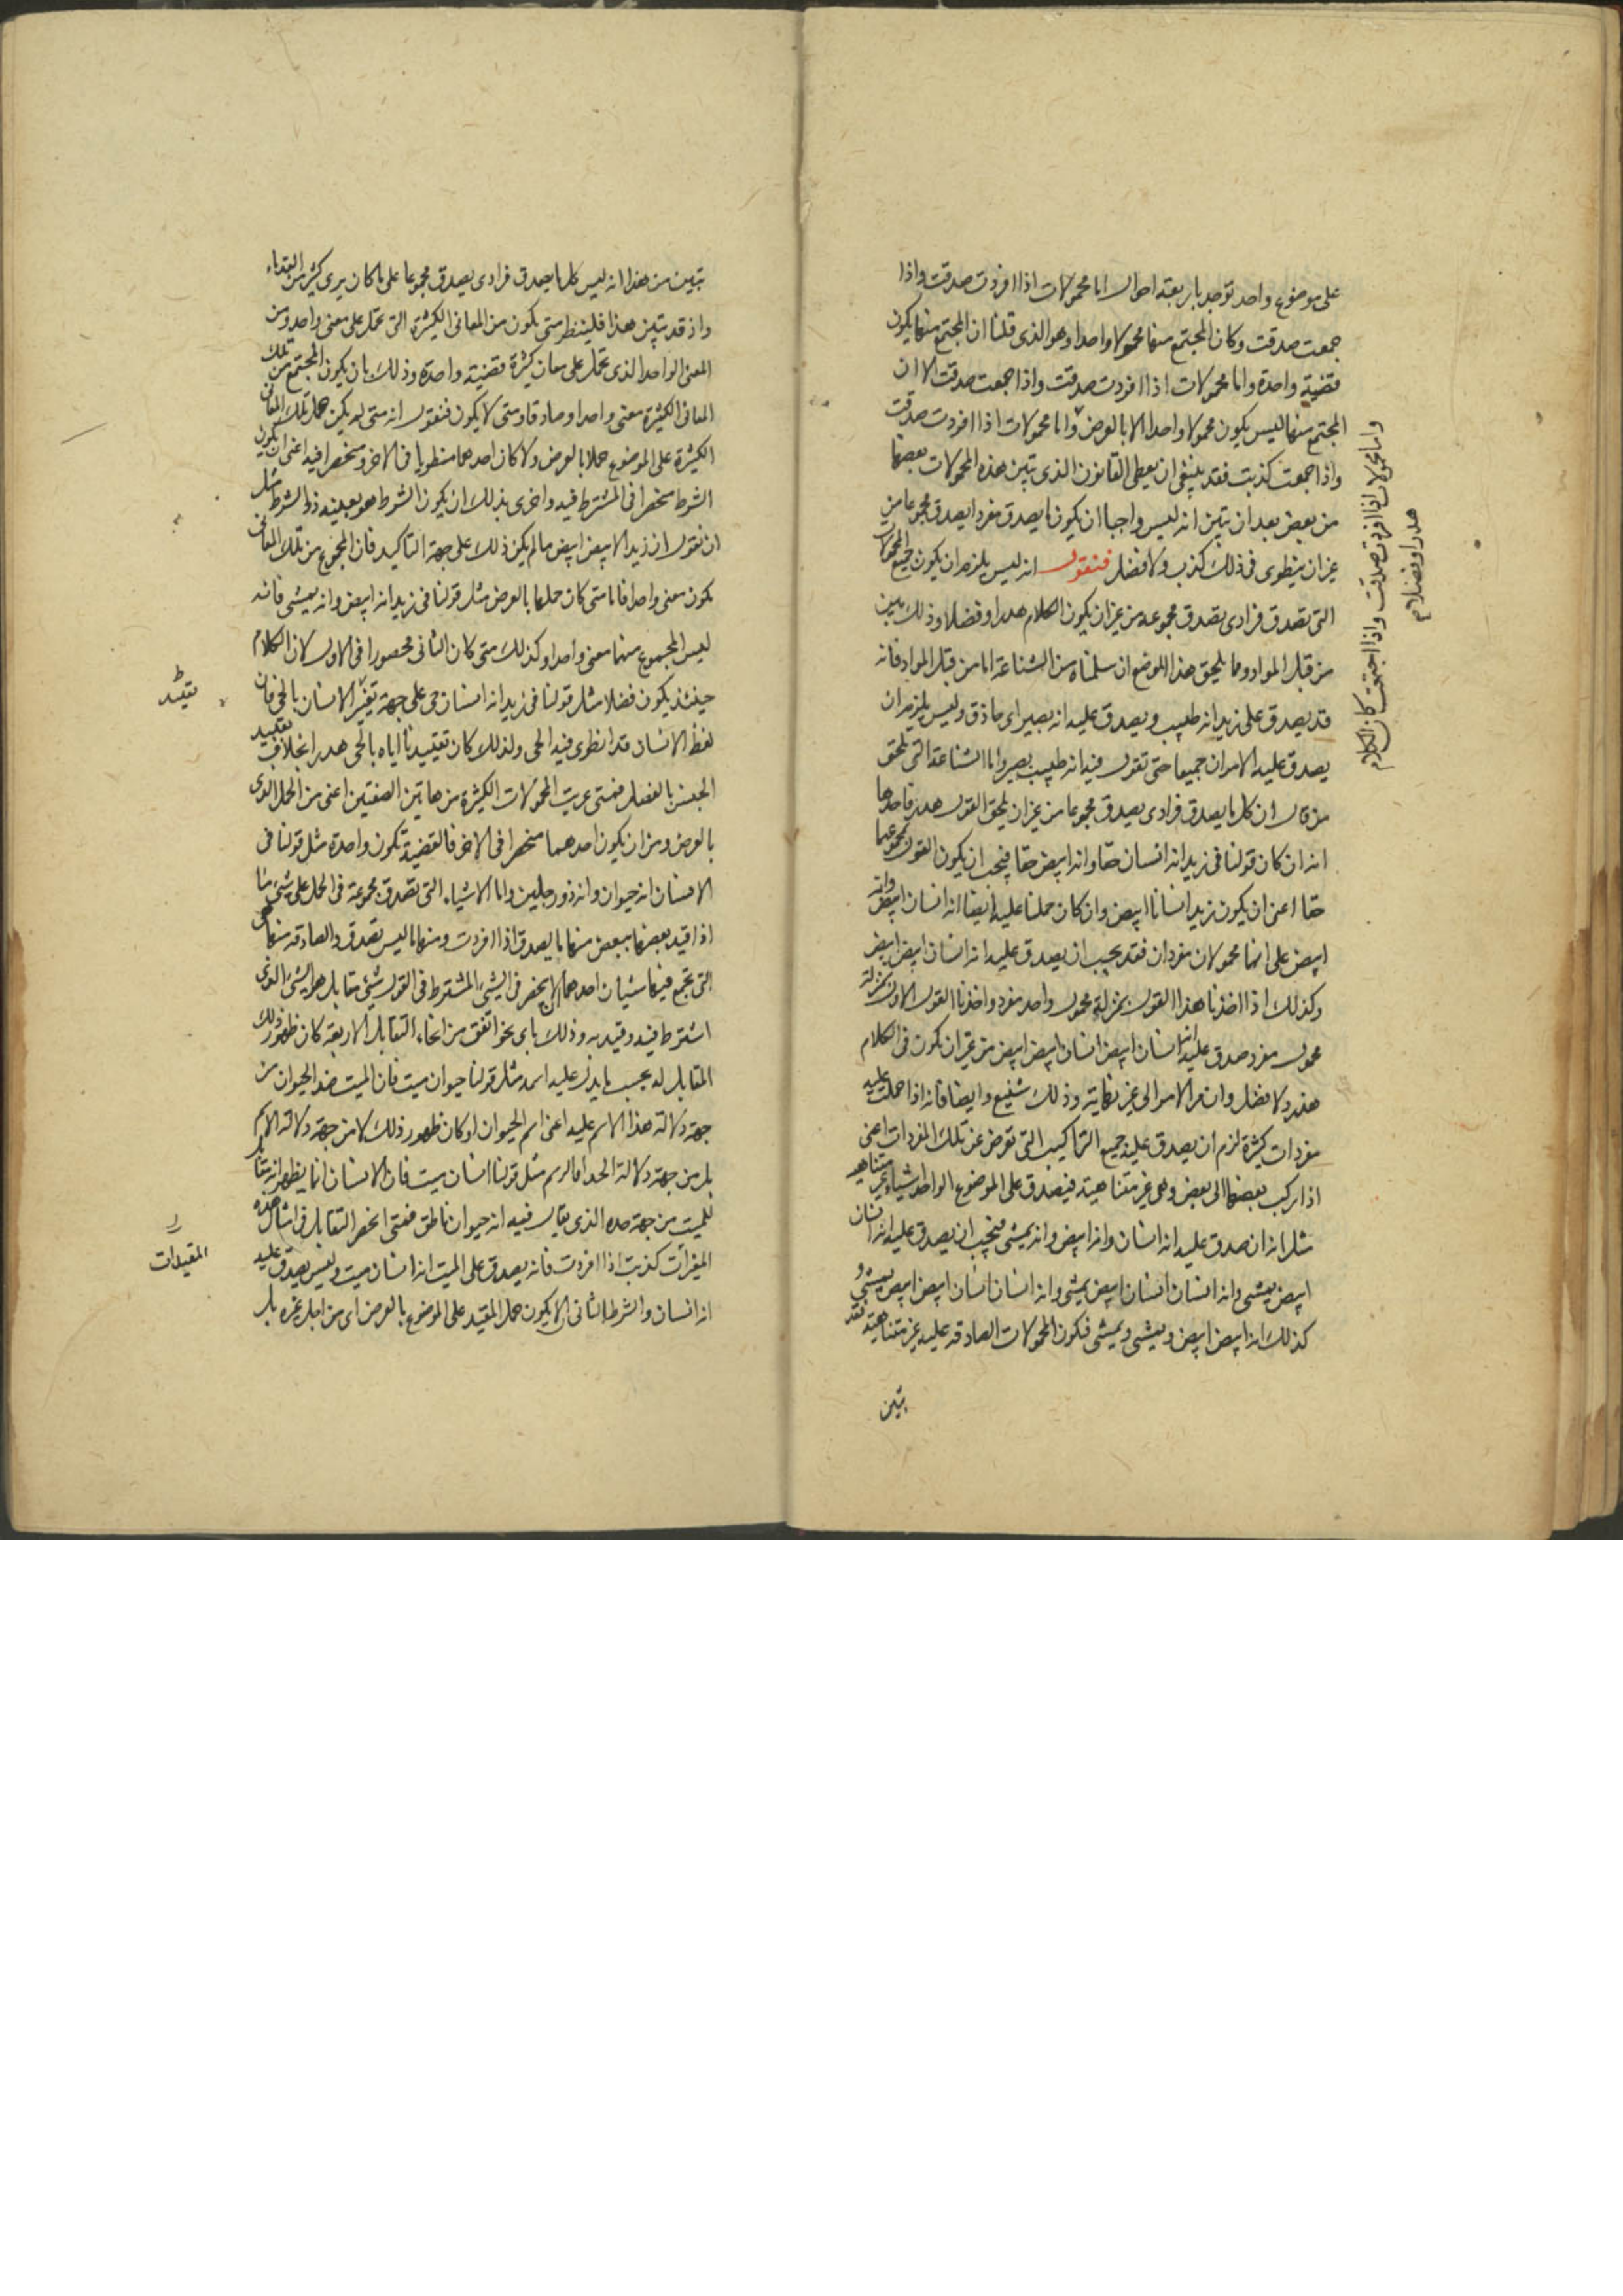 على موضوع واحد توجد باربعة احوال اما محمولات اذا افردت صدقت واذا
جمعت صدقت وكان المجتمع منها محمولا واحدا وهو الذى قلنا ان المجتمع منها يكون
قضية واحدة واما محمولات اذا افردت صدقت واذا جمعت صدقت الا ان
المجتمع منها ليس يكون محمولا واحدا الا بالعرض واما محمولات اذا افردت صدقت
واذا جمعت كذبت فقد ينبغى ان يعطى القانون الذى تبين هذه المحمولات بعضها
من بعض بعد ان تبين انه ليس واجبا ان يكون ما يصدق مفردا يصدق مجموعا من
غير ان ينطوى فى ذلك كذب ولا فضل فنقول انه ليس يلزم ان يكون جميع المحمولات
التى تصدق فرادى تصدق مجموعه من غير ان يكون الكلام هدرا وفضلا وذلك يبين
من قبل المواد ومما يلحق هذا الموضع ان سلمناه من الشناعة اما من قبل المواد فانه
قد يصدق على زيد انه طبيب ويصدق عليه انه بصير اى حاذق وليس يلزم ان
يصدق عليه الامران جميعا حتى تقول فيه انه طبيب بصير واما الشناعة التى تلحق
من قال ان كل ما يصدق فرادى يصدق مجموعا من غير ان يلحق القول هدر فاحدها
انه ان كان قولنا فى زيد انه انسان حقا وانه ابيض حقا فيجب ان يكون القول بمجموعهما
حقا اعنى ان يكون زيد انسانا ابيض وان كان حملنا عليه ايضا انه انسان ابيض وانه
ابيض على انها محمولان مفردان فقد يجب ان يصدق عليه انه انسان ابيض ابيض
وكذلك اذا اخذنا هذا القول بمنزلة محمول واحد مفرد واخذنا القول الاول بمنزلة
محمول مفرد صدق عليه انه انسان ابيض انسان ابيض ابيض من غير ان يكون فى الكلام
هذر ولا فضل وان مر الامر الى غير نهاية وذلك شنيع وايضا فانه اذا حملت عليه
مفردات كثيرة لزم ان يصدق عليه جميع التراكيب التى تعرض عن تلك المفردات اعنى
اذا ركب بعضها الى بعض وهى غير متناهية فيصدق على الموضوع الواحد اشياء غير متناهيه
مثلا انه ان صدق عليه انه انسان وانه ابيض وانه يمشى فيجب ان يصدق عليه انه انسان
ابيض يمشى وانه انسان انسان ابيض يمشى وانه انسان انسان ابيض ابيض يمشى و
كذلك انه ابيض ابيض ويمشى ويمشى فتكون المحمولات الصادقه عليه غير متناهية فقد
تبين
واما محمولات اذا افردت صدقت واذا اجتمعت كان الكلام
هدرا وفضلا م
تبين من هذا انه ليس كل ما يصدق فرادى يصدق مجموعا على ما كان يرى كثير من القدماء
واذ قد تبين هذا فلينظر متى يكون من المعانى الكثيرة التى تحمل على معنى واحد ومن
المعنى الواحد الذى يحمل على معان كثيرة قضية واحدة وذلك بان يكون المجتمع من تلك
المعانى الكثيرة معنى واحدا وصادقا ومتى لا يكون فنقول انه متى لم يكن حمل تلك المعانى
الكثيرة على الموضوع حملا بالعرض ولا كان احدهما منطويا فى الاخر ومنحصرا فيه اعنى ان يكون
الشرط منحصرا فى المشترط فيه واخرى بذلك ان يكون الشرط هو بعينه ذو الشرط مثل
ان نقول ان زيدا لابيض ابيض ما لم يكن ذلك على جهة التاكيد فان المجموع من تلك المعانى
يكون معنى واحدا فاما متى كان حملها بالعرض مثل قولنا فى زيد انه ابيض وانه يمشى فانه
ليس المجموع منهما معنى واحدا وكذلك متى كان الثانى محصورا فى الاول لان الكلام
حينئذ يكون فضلا مثل قولنا فى زيد انه انسان حى على جهة تقييد الانسان بالحى فان
لفظ الانسان قد انطوى فيه الحى ولذلك كان تقييدنا اياه بالحى هدرا بخلاف تقييد
الجنس بالفصل فمتى عريت المحمولات الكثيرة من هاتين الصفتين اعنى من الحمل الذى
بالعرض ومن ان يكون احدهما منحصرا فى الاخر فالقضية تكون واحدة مثل قولنا فى
الانسان انه حيوان وانه ذو رجلين واما الاشياء التى تصدق مجموعة فى الحمل على شئ ما
اذا قيد بعضها ببعض منها ما يصدق اذا افردت ومنها ما ليس تصدق والصادقه منها هى
التى تجمع فيها شيئان احدهما الا ينحصر فى الشئ المشترط فى القول شئ مقابل هو الشئ الذى
اشترط فيه وقيد به وذلك باى نحو اتفق من انحاء التقابل الاربعة كان ظهور ذلك
المقابل له بحسب ما يدل عليه اسمه مثل قولنا حيوان ميت فان الميت ضد الحيوان من
جهة دلالة هذا الاسم عليه اعنى اسم الحيوان او كان ظهور ذلك لا من جهة دلالة الاسم
بل من جهة دلالة الحد او الرسم مثل قولنا انسان ميت فان الانسان انما يظهر انه مقابل
للميت من جهة حده الذى يقال فيه انه حيوان ناطق فمتى انحصر التقابل فى امثال هذه
المفرأت كذبت اذا افردت فانه يصدق على الميت انه انسان ميت وليس يصدق عليه
انه انسان والشرط الثانى الا يكون حمل المقيد على الموضوع بالعرض اى من اجل غيره بل
تقييد
المقيدات